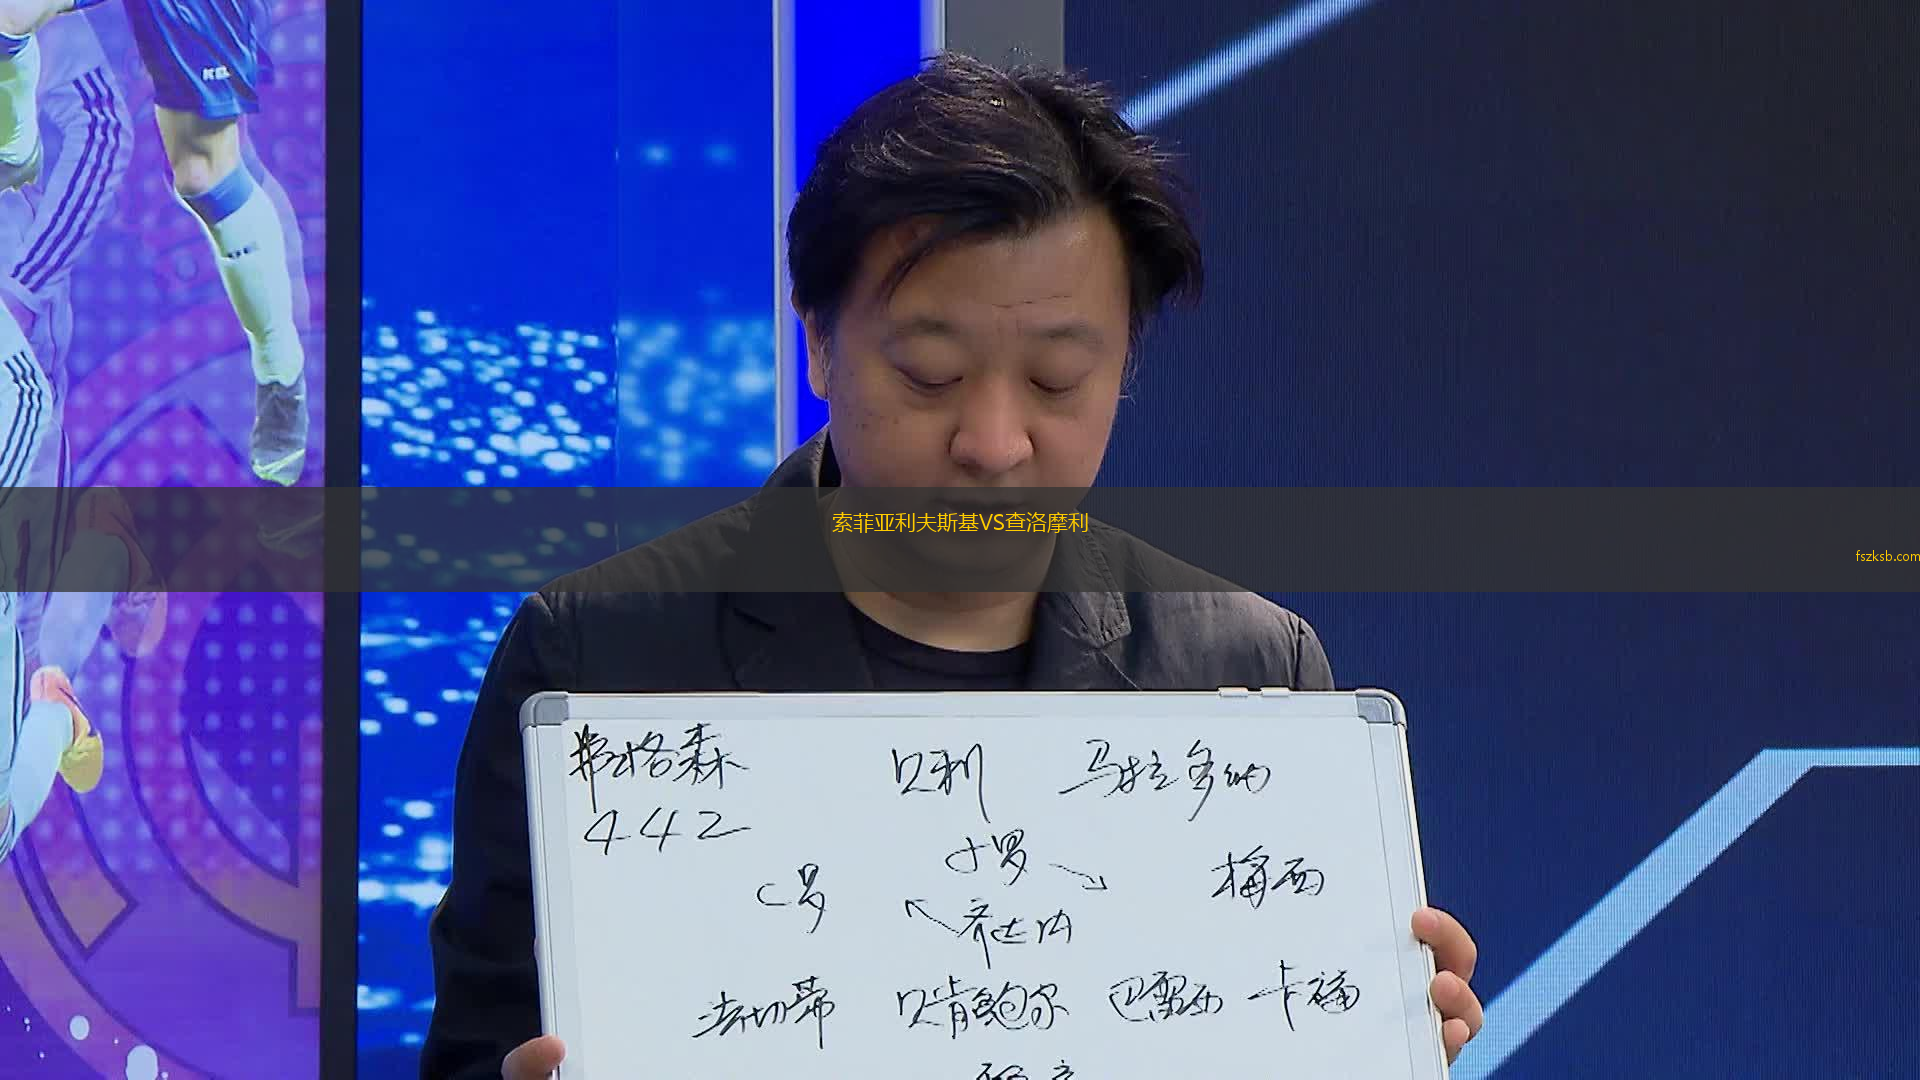 索菲亚利夫斯基VS查洛摩利
fszksb.com
弗格森 贝利 马拉多纳
442
小罗
C罗 梅西
齐达内
法切蒂 贝肯鲍尔 巴雷西 卡福